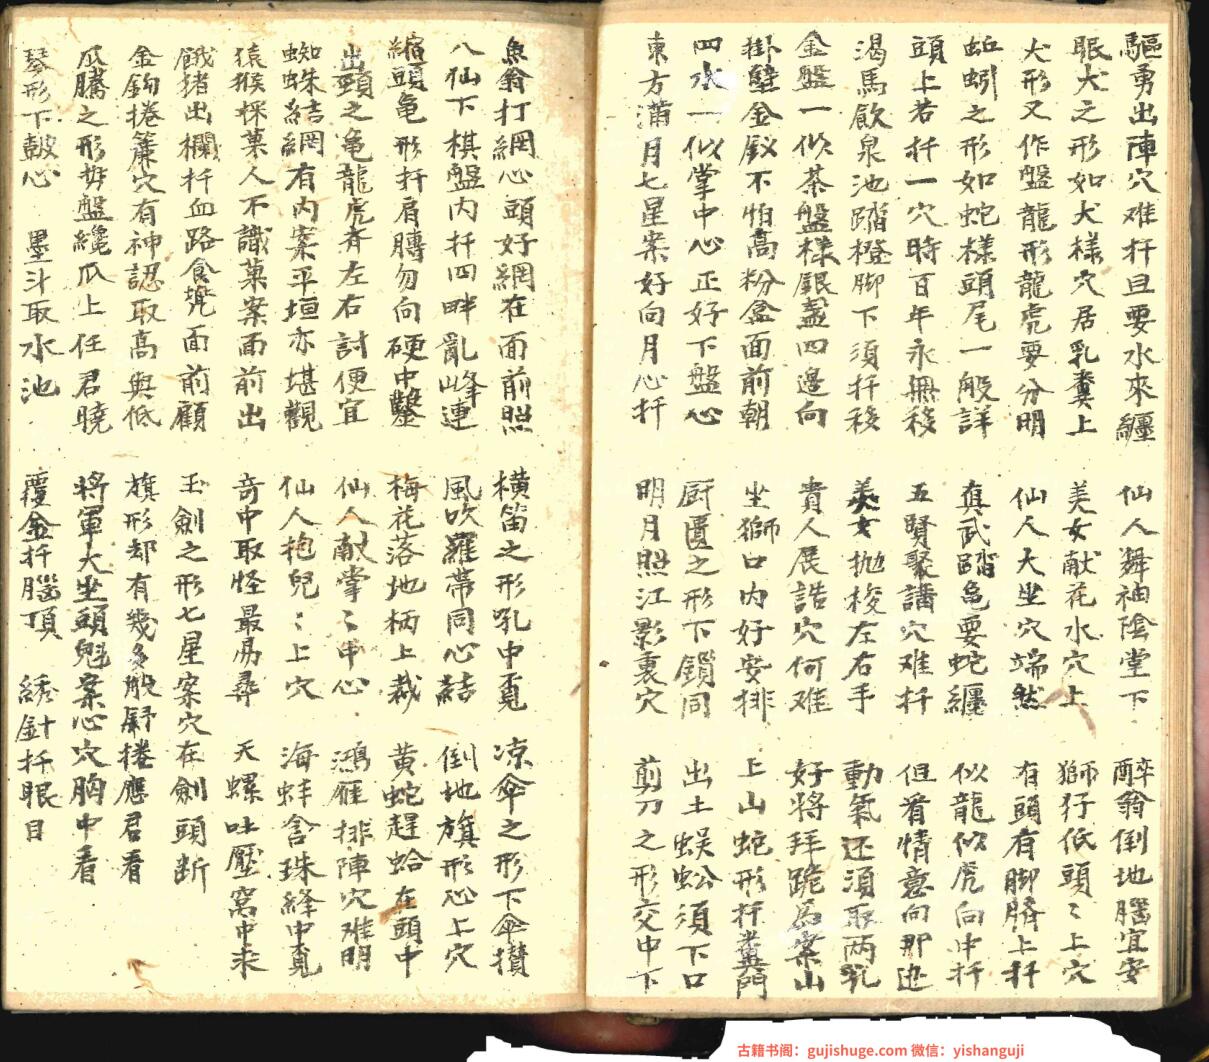 驅勇出陣穴难扦且要水來纏 仙人舞袖陰堂下 醉翁倒地腦宜安
眠犬之形如犬樣穴居乳糞上 美女献花水穴上 獅犴低頭〻上穴
犬形又作盤龍形龍虎要分明 仙人大坐穴端然 有頭有脚臍上扦
蚯蚓之形如蛇樣頭尾一般詳 真武踏龟要蛇纏 似龍似虎向中扦
頭上若扦一穴時百年永無移 五賢聚講穴难扦 但看情意向那边
渴馬飲泉池踏橙脚下須扦移 美女抛梭左右手 動氣还須取两乳
金盤一似茶盤樣銀盞四邊向 貴人展誥穴何难 好將拜跪為案山
掛壁金釵不怕高粉盒面前朝 坐獅口内好安排 上山蛇形扦糞門
四水一似掌中心正好下盤心 厨匱之形下鎖同 出土蜈蚣須下口
東方滿月七星案好向月心扦 明月照江影裏穴 剪刀之形交中下
魚翁打網心頭好網在面前照 横笛之形吼中覔 凉傘之形下傘攅
八仙下棋盤内扦四畔亂峰連 風吹羅帶同心結 倒地旗形心上穴
縮頭龟形扦肩膊勿向硬中鑿 梅花落地柄上裁 黄蛇趕蛤在頭中
出頸之龟龍虎斉左右討便宜 仙人献掌〻中心 鴻雁排陣穴难明
蜘蛛結網有内案平垣亦堪觀 仙人抱兒〻上穴 海蚌含珠縫中覔
猿猴採菓人不識菓案面前出 奇中取怪最易尋 天螺吐壓窩中來
餓猪出欄扦血路食面前顧 玉劍之形七星案穴在劍頭断
金鉤捲簾穴有神認取高與低 旗形却有幾多般舒捲應君看
瓜騰之形盤纔瓜上任君曉 將軍大坐頭魁案心穴胸中看
琴形下皷心 墨斗取水池 覆金扦腦頂 綉針扦眼目
古籍书阁：gujishuge.com 微信：yishanguji